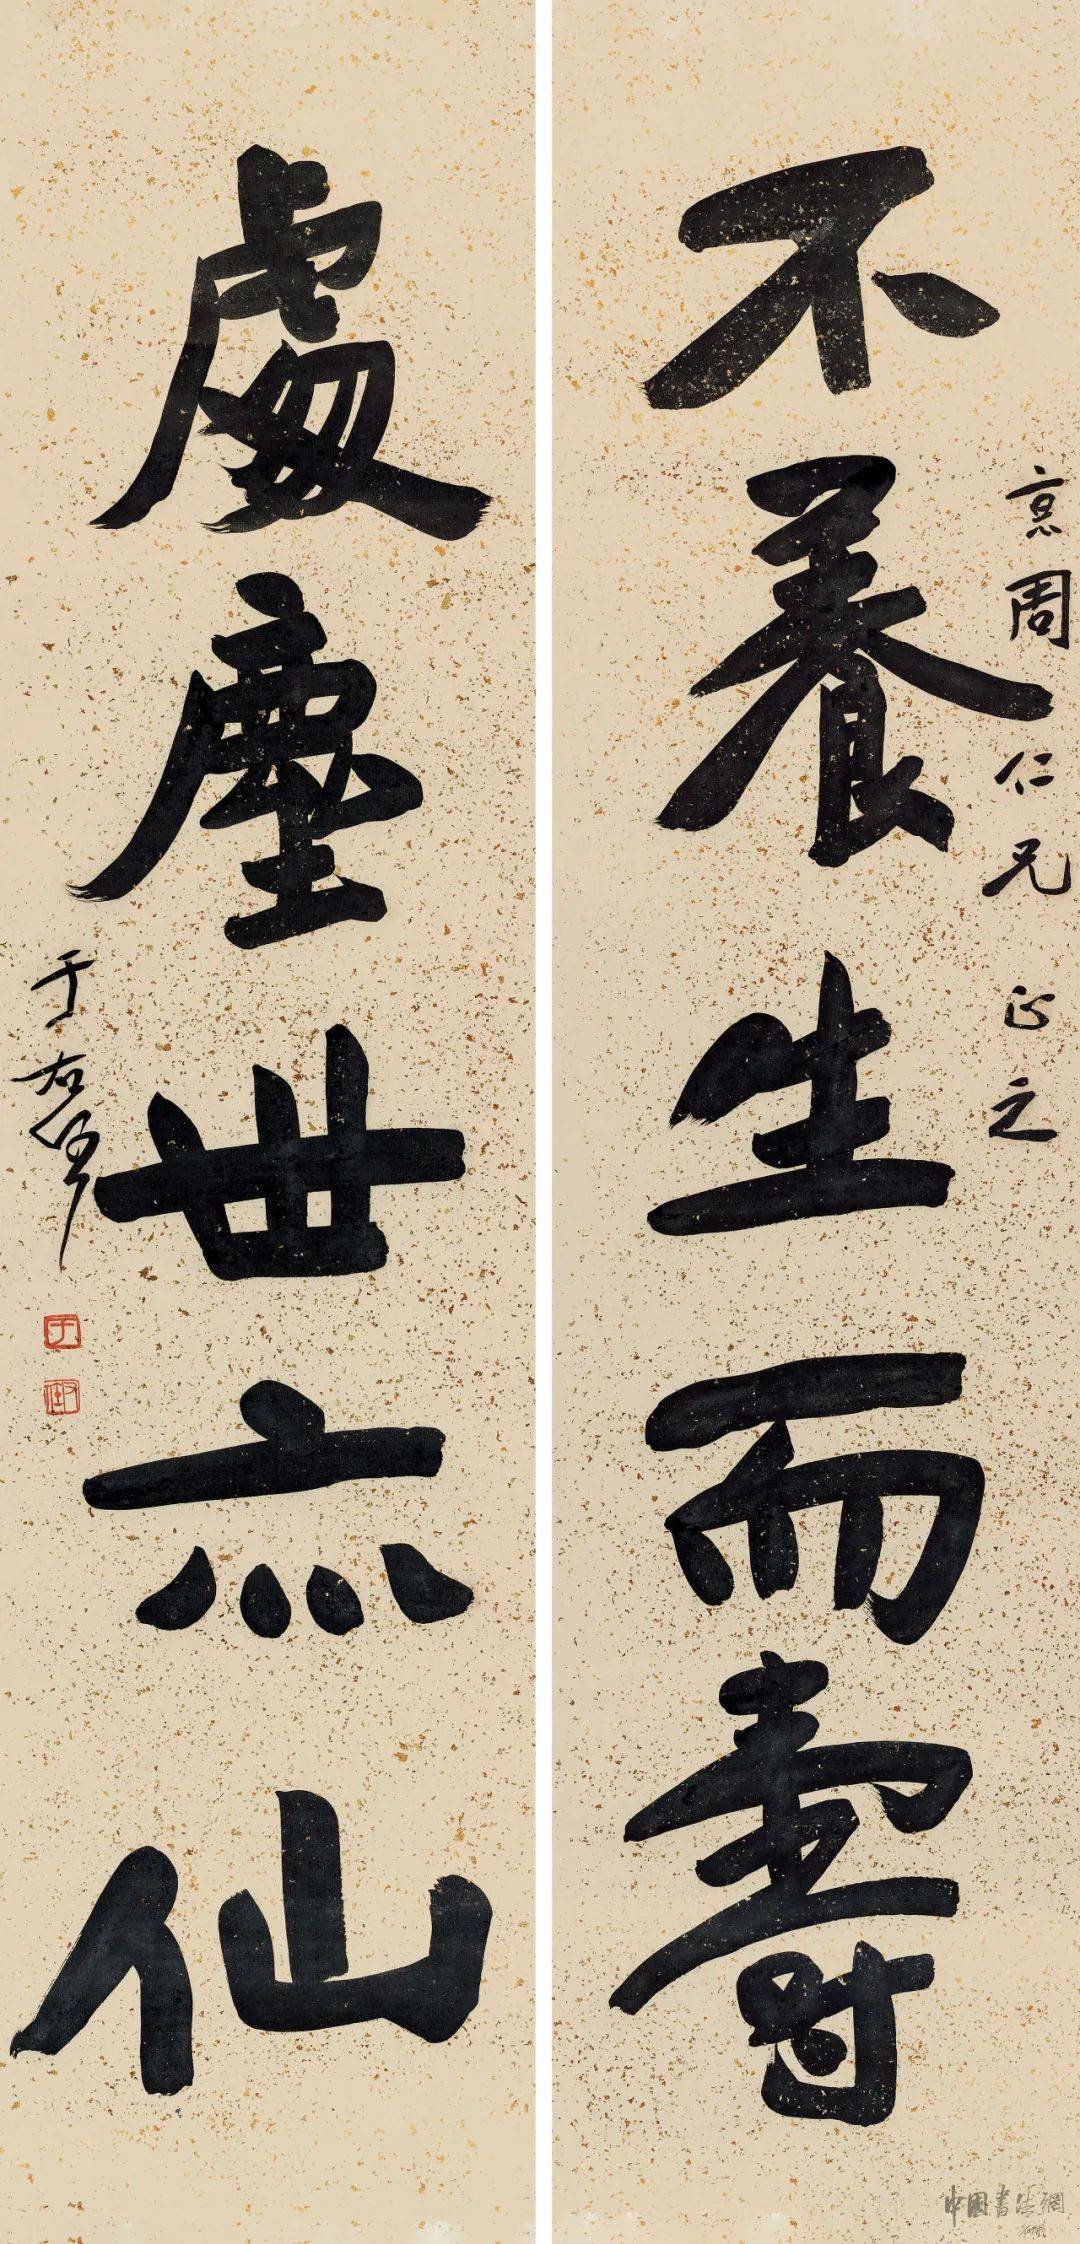 周仁兄正之
不養生而壽
處塵世亦仙
于右任
中國書法網